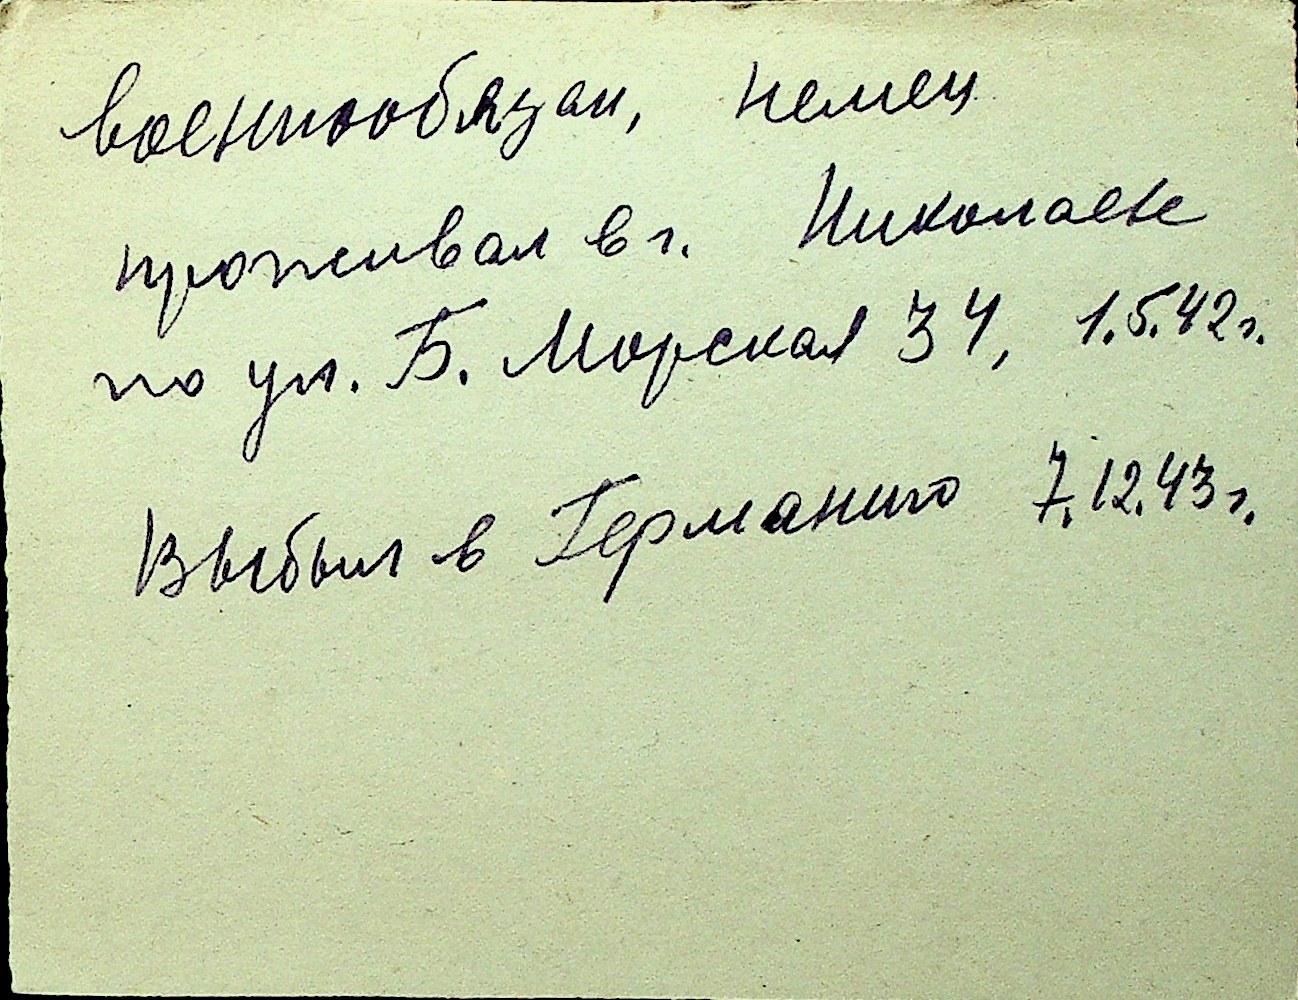 военнообязан, немец
проживал в г. Николаеве
по ул. Б. Морская 34, 1.5.42 г.
Выбыл в Германию 7.12.43 г.